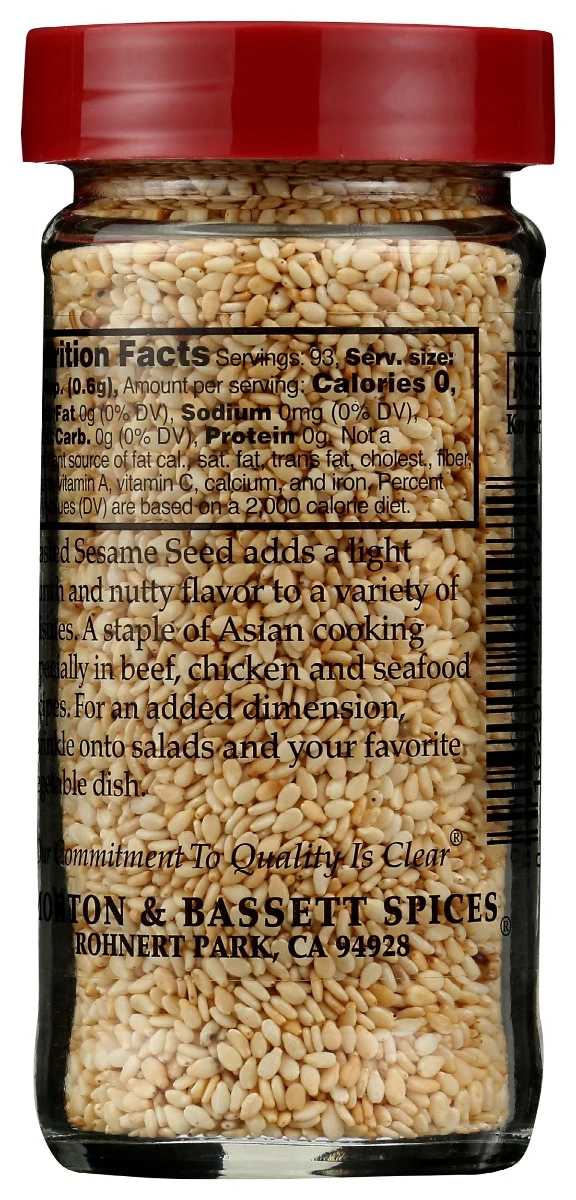 rition Facts Servings: 93, Serv. size:
(0.6g), Amount per serving: Calories 0,
Fat 0g (0% DV), Sodium 0mg (0% DV),
Carb. 0g (0% DV), Protein 0g. Not a
source of fat cal., sat. fat, trans fat, cholest., fiber,
vitamin A, vitamin C, calcium, and iron. Percent
(DV) are based on a 2,000 calorie diet.
Sesame Seed adds a light
and nutty flavor to a variety of
A staple of Asian cooking
in beef, chicken and seafood
For an added dimension,
onto salads and your favorite
dish.
Commitment To Quality Is Clear®
ORTON & BASSETT SPICES®
ROHNERT PARK, CA 94928